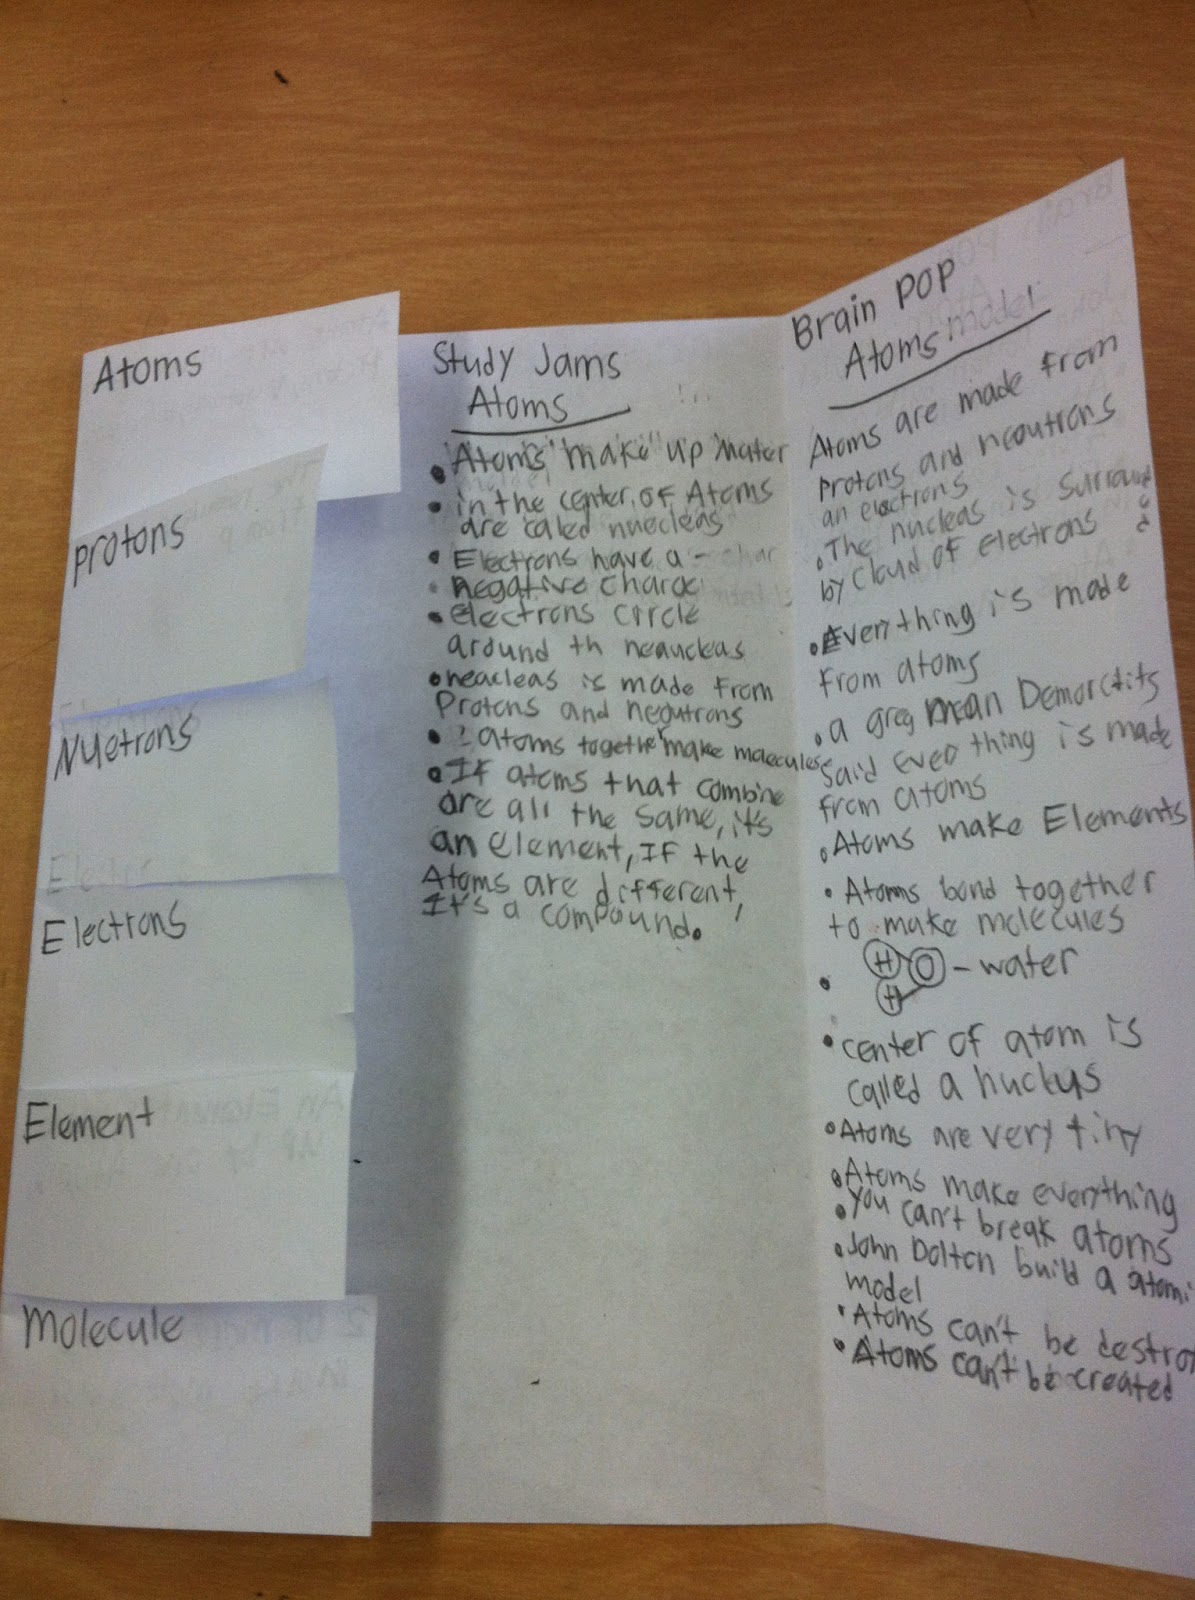 Atoms
protons
Nuetrons
Electrons
Element
Molecule
Study Jams
Atoms
• Atoms make up mater
• in the center of Atoms
are called nuecleas
• Electrons have a -
• negative charge
• electrons circle
around th neaucleas
• neacleas is made from
Protons and negutrons
• 2 atoms together make molecules
• If atoms that combine
are all the same, it's
an element, If the
Atoms are different,
It's a compound.
Brain POP
Atoms model
Atoms are made from
protons and neoutrons
an electrons
• The nucleas is surround
by cloud of electrons
• Everything is made
from atoms
• a greg man Demorctits
said ever thing is made
from atoms
• Atoms make Elements
• Atoms bond together
to make molecules
• H O - water
H
• center of atom is
called a nuckus
• Atoms are very tiny
• Atoms make everything
• You can't break atoms
• John Dolton build a atomi
model
• Atoms can't be destroy
• Atoms can't be created